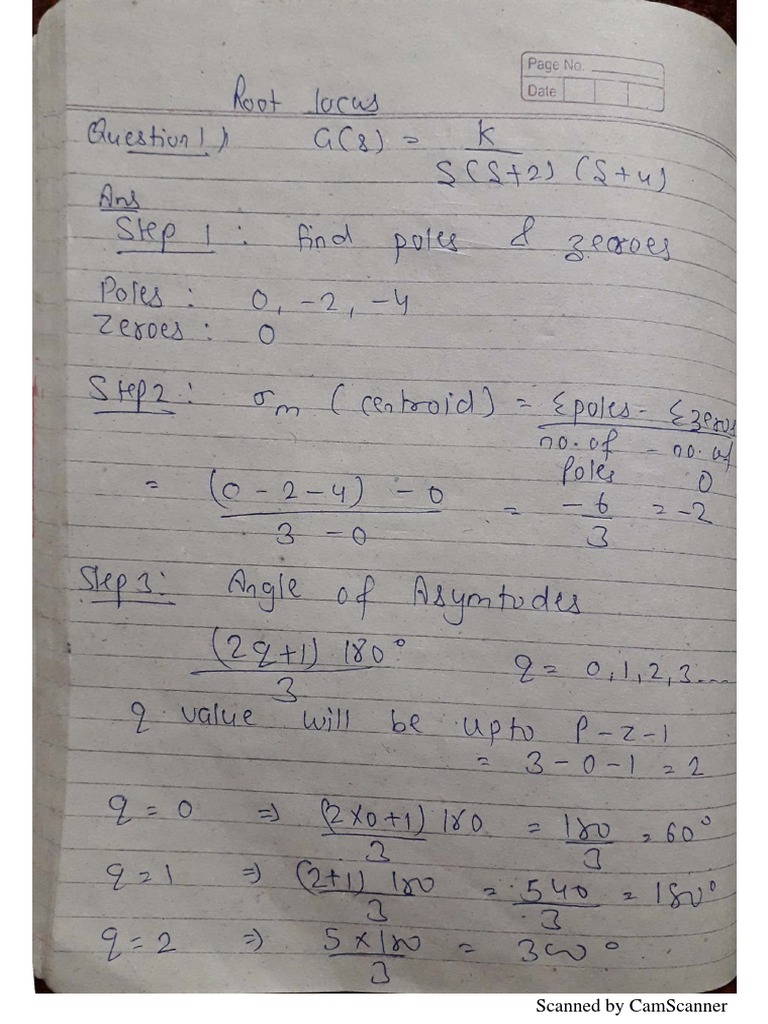 Page No.
Date
Root locus
Question 1) G(s) = K / S(S+2)(S+4)
Ans
Step 1: find poles & zeroes
Poles: 0, -2, -4
Zeroes: 0
Step 2: σm (centroid) = Σpoles - Σzeros / no. of poles - no. of 0
= (0-2-4) - 0 / 3 - 0 = -6/3 = -2
Step 3: Angle of Asymtodes
(2q+1) 180° / 3 q = 0,1,2,3....
q value will be upto P-z-1
= 3-0-1 = 2
q = 0 ⇒ (2×0+1) 180 / 3 = 180/3 = 60°
q = 1 ⇒ (2+1) 180 / 3 = 540/3 = 180°
q = 2 ⇒ 5×180 / 3 = 300°
Scanned by CamScanner